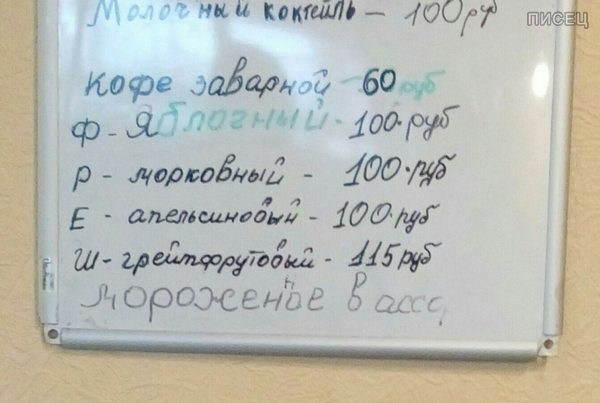 Молочный коктейль - 100 руб
ПИСЕЦ
Кофе заварной - 60 руб
Ф - Яблочный - 100 руб
Р - морковный - 100 руб
Е - апельсиновый - 100 руб
Ш - грейпфрутовый - 115 руб
мороженое в асс